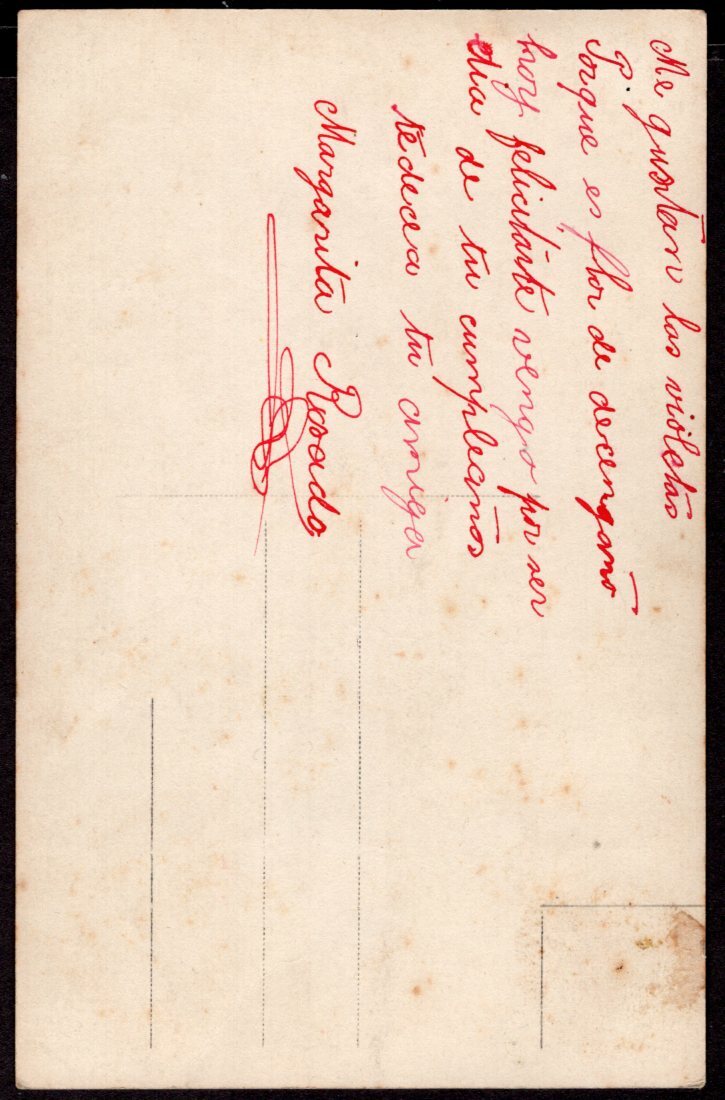 Me gustan las violetas
P.
Porque es flor de decengaño
hoy felicitarte vengo por ser
dia de tu cumpleaños
tedecea tu amiga
Margarita Rosado